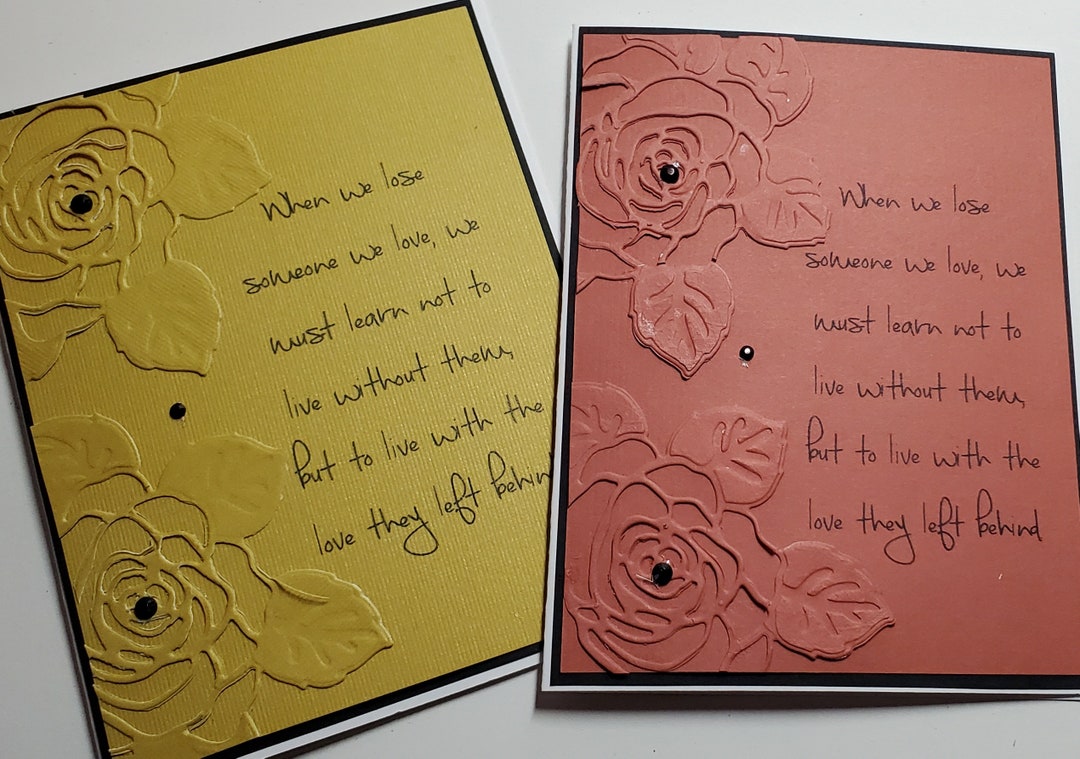 When we lose
someone we love, we
must learn not to
live without them,
but to live with the
love they left behin
When we lose
someone we love, we
must learn not to
live without them,
but to live with the
love they left behind